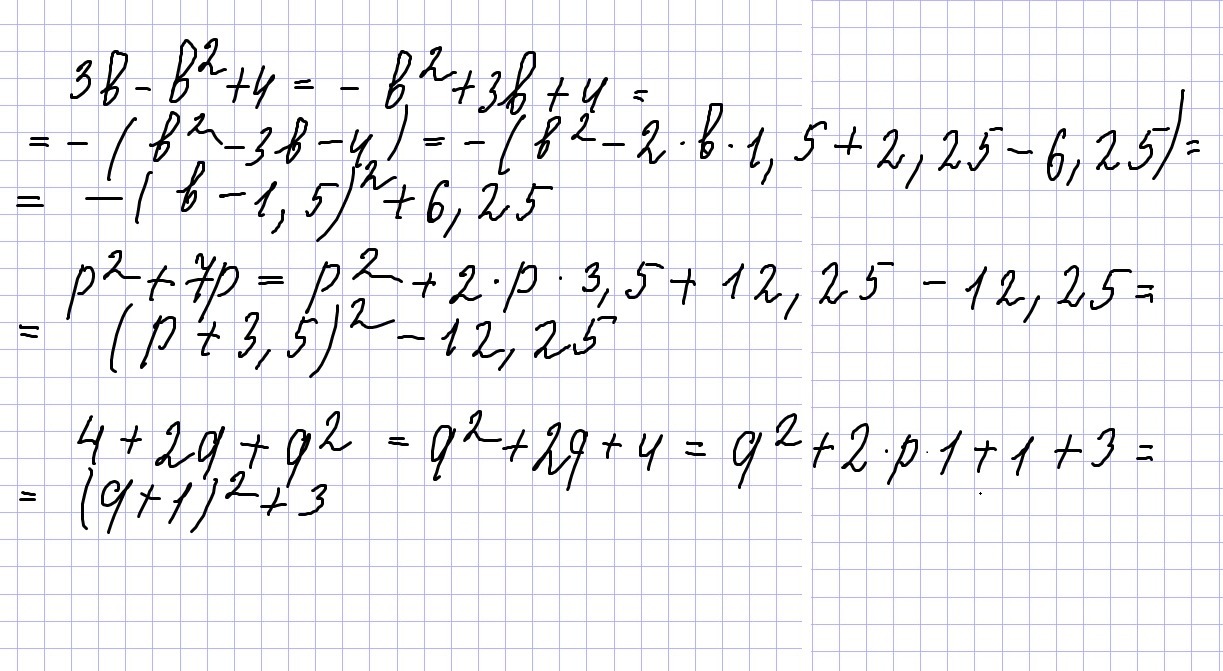 3b - b² + 4 = - b² + 3b + 4 =
= - ( b² - 3b - 4 ) = - ( b² - 2 · b · 1,5 + 2,25 - 6,25 ) =
= - ( b - 1,5 )² + 6,25
p² + 7p = p² + 2 · p · 3,5 + 12,25 - 12,25 =
= ( p + 3,5 )² - 12,25
4 + 2q + q² = q² + 2q + 4 = q² + 2 · p · 1 + 1 + 3 =
= ( q + 1 )² + 3